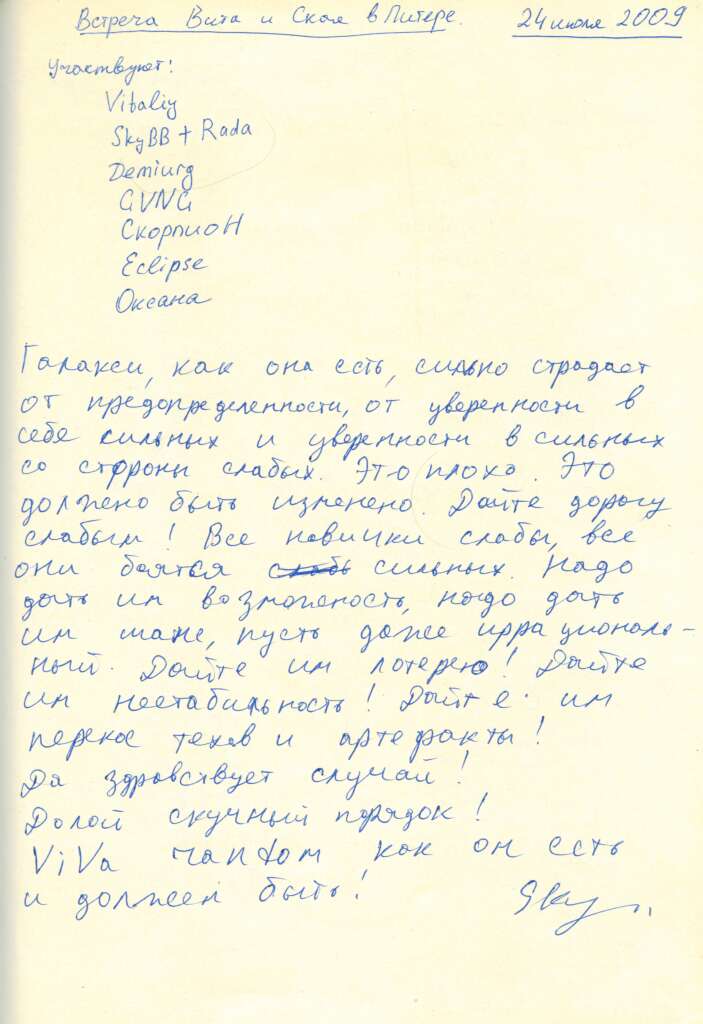 Встреча Вита и Ская в Питере. 24 июля 2009
Участвуют:
Vitaliy
SkyBB + Rada
Demiurg
GVNG
СкорпиоН
Eclipse
Оксана
Галакси, как она есть, сильно страдает
от предопределенности, от уверенности в
себе сильных и уверенности в сильных
со стороны слабых. Это плохо. Это
должено быть изменено. Дайте дорогу
слабым! Все новички слабы, все
они бояться сильных. Надо
дать им возможность, надо дать
им шанс, пусть даже иррациональ-
ный. Дайте им лотерею! Дайте
им нестабильность! Дайте им
перекос техов и артефакты!
Да здравствует случай!
Долой скучный порядок!
ViVa как он есть
и должен быть!
Sky